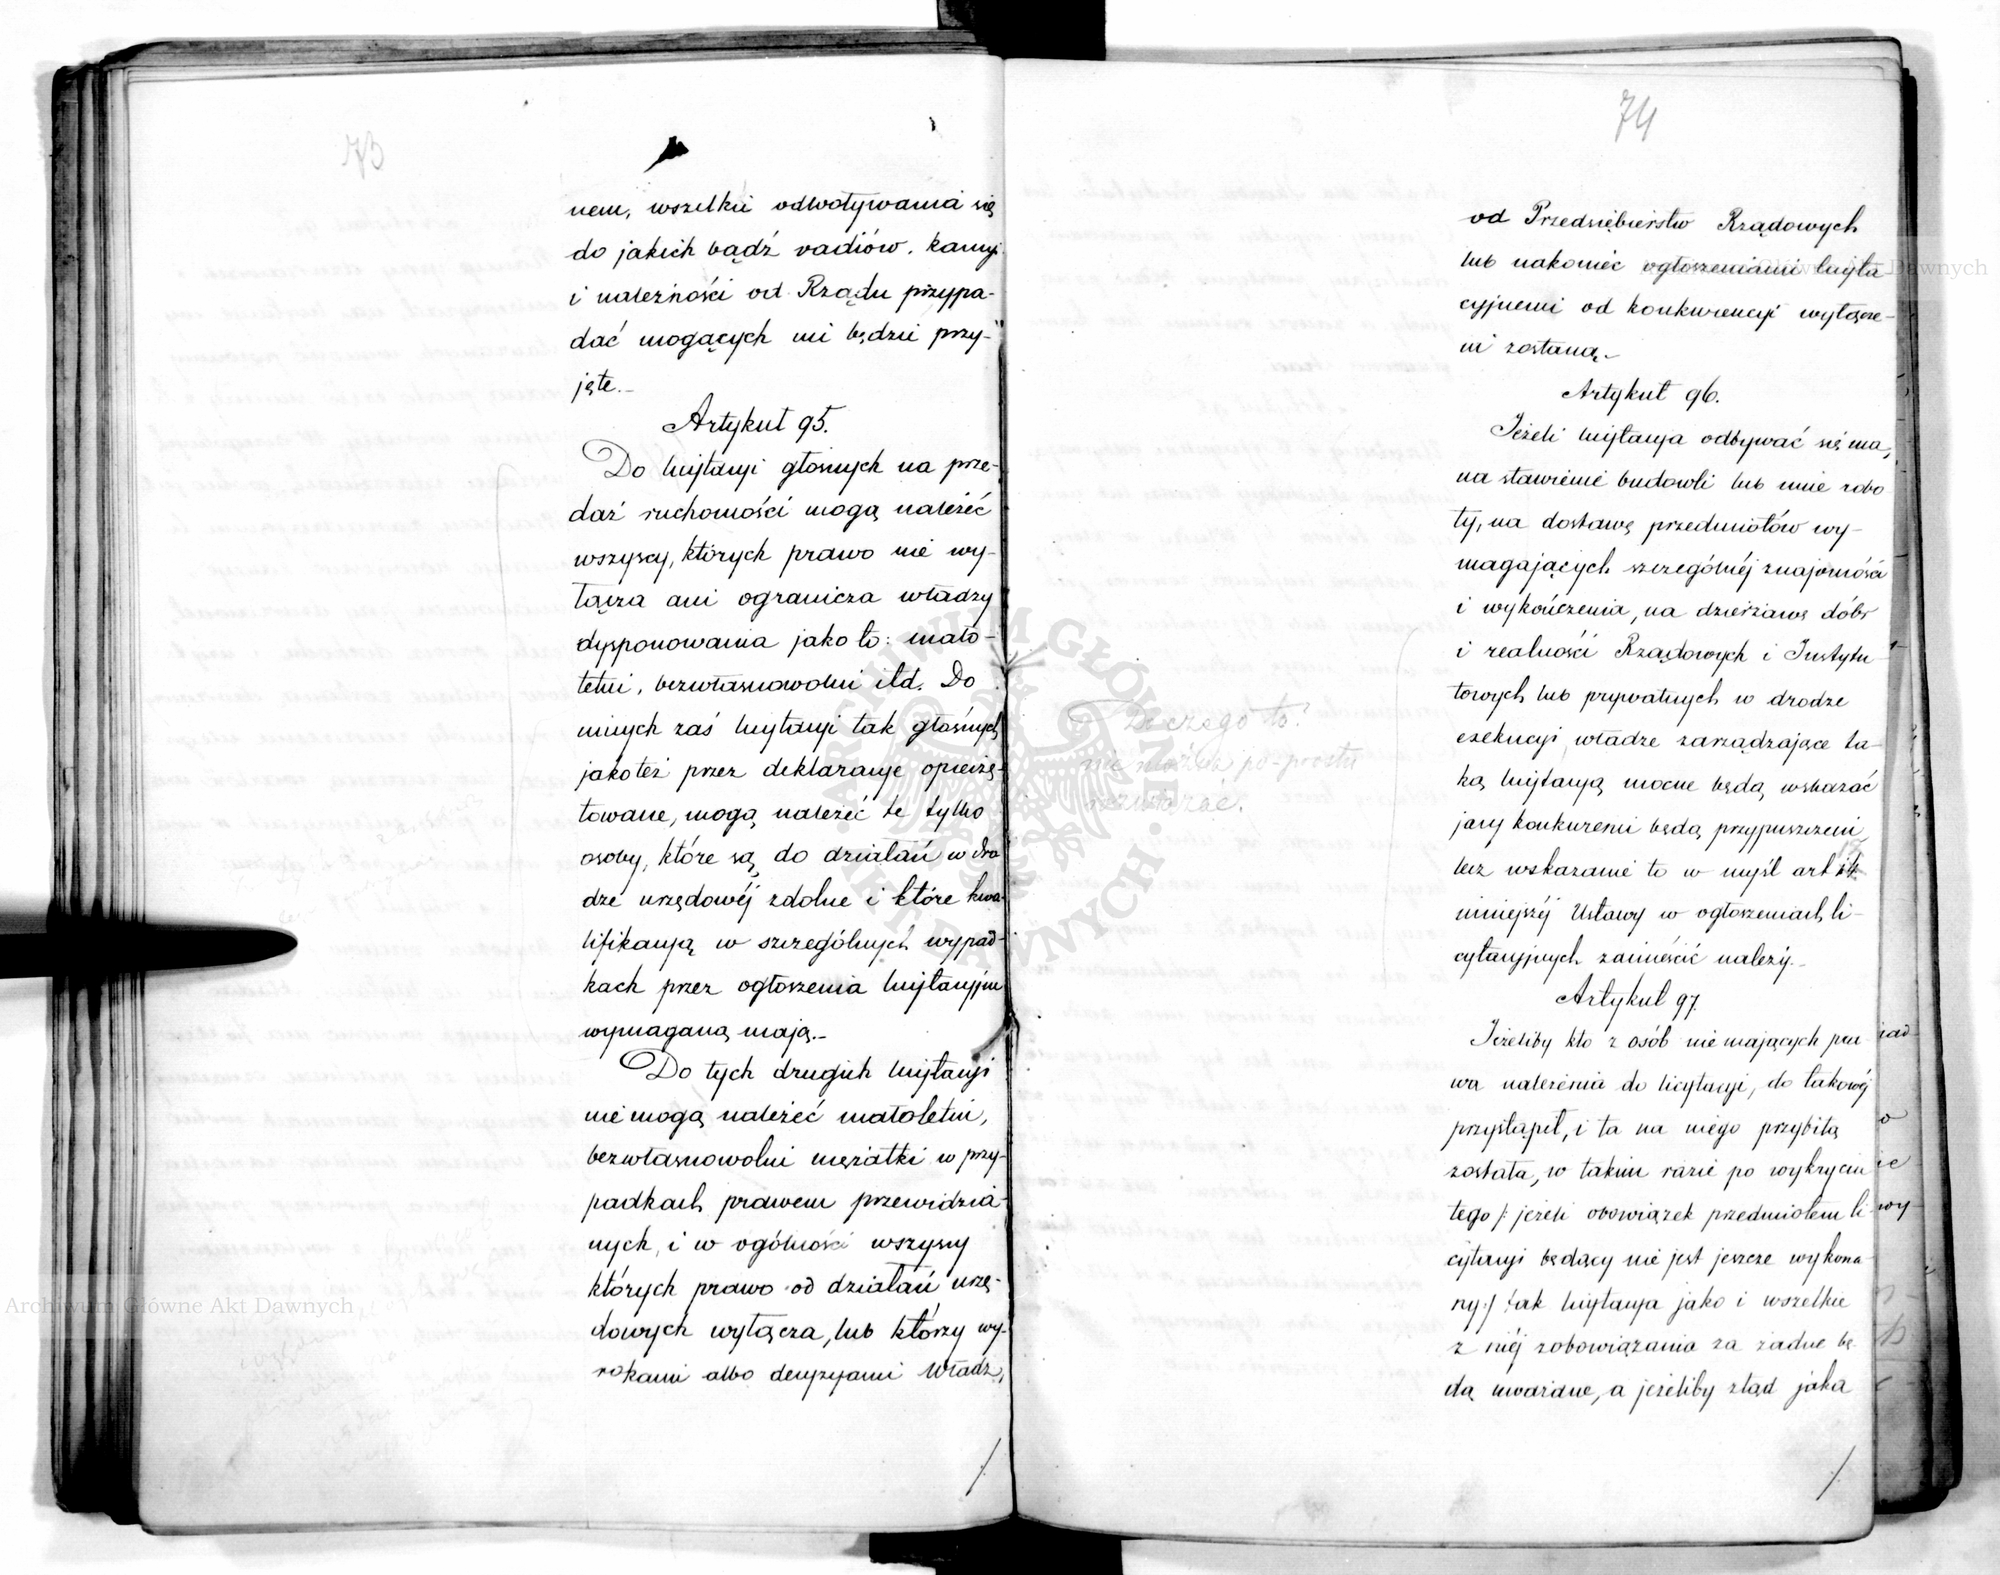 73
nem, wszelkie odwoływania się
do jakich bądź vadiów, kaucyi
i należności od Rządu przypa-
dać mogących nie będzie przy-
jęte.-
Artykuł 95.
Do licytacyi głośnych na prze-
daż ruchomości mogą należeć
wszyscy, których prawo nie wy-
łącza ani ogranicza władzy
dysponowania jako to: mało-
letni, bezwłasnowolni itd. Do
innych zaś licytacyi tak głośnych
jakoteż przez deklaracye opieczę-
towane, mogą należeć te tylko
osoby, które są do działań w dro
dze urzędowéj zdolne i które kwa-
lifikacyą w szczególnych wypad-
kach przez ogłoszenia licytacyjne
wymaganą mają.-
Do tych drugich licytacyi
nie mogą należeć małoletni,
bezwłasnowolni mężatki w przy-
padkach prawem przewidzia-
nych, i w ogólności wszyscy
których prawo od działań urzę-
dowych wyłącza, lub którzy wy-
rokami albo decyzyami Władz,
74
od Przedsiębierstw Rządowych
lub nakoniec ogłoszeniami licyta
cyjnemi od konkurencyi wyłącze-
ni zostaną.-
Artykuł 96.
Jeżeli licytacya odbywać się ma,
na stawienie budowli lub inne robo
ty, na dostawę przedmiotów wy-
magających szczególnéj znajomości
i wykończenia, na dzierżawę dóbr
i realności Rządowych i Instytu-
towych lub prywatnych w drodze
exekucyi władze zarządzające ta-
ką licytacyą mocne będą wskazać
jacy konkurenci będą przypuszczeni
lecz wskazanie to w myśl art
niniejszéj Ustawy w ogłoszeniach li-
cytacyjnych zamieścić należy.-
Artykuł 97.
Jeżeliby kto z osób nie mających pra-
wa należenia do licytacyi, do takowéj
przystąpił, i ta na niego przybitą
została, w takim razie po wykryciu
tego /: jeżeli obowiązek przedmiotem li-
cytacyi będący nie jest jeszcze wykona
ny :/ tak licytacya jako i wszelkie
z niéj zobowiązania za żadne bę-
dą uważane, a jeżeliby ztąd jaka
Do czego to?
nie można po-prostu
Archiwum Główne Akt Dawnych
ARCHIWUM GŁÓWNE AKT DAWNYCH